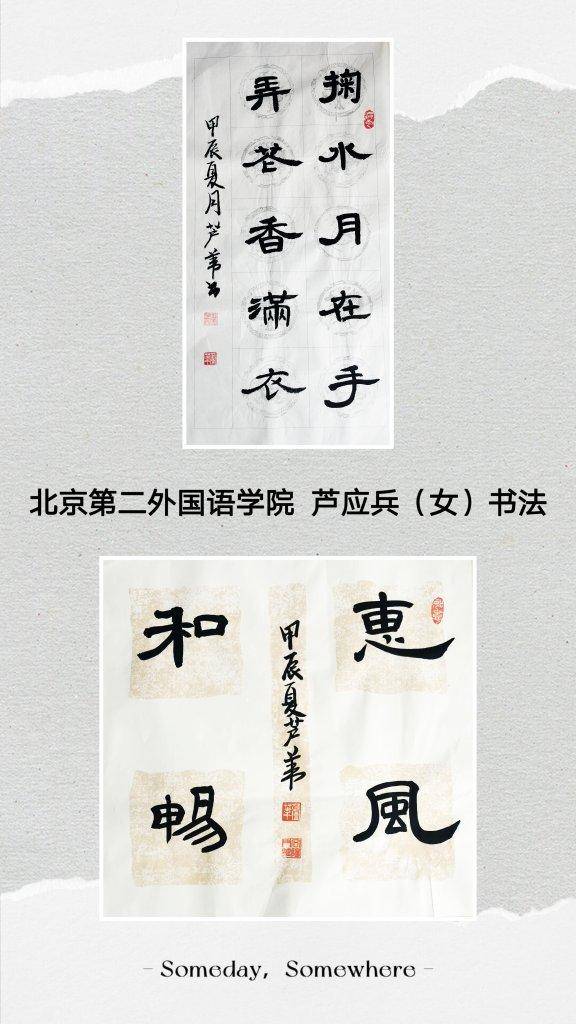 掬水月在手
弄花香滿衣
甲辰夏月芦苇书
北京第二外国语学院 芦应兵（女）书法
惠風
甲辰夏芦苇
和暢
- Someday, Somewhere -